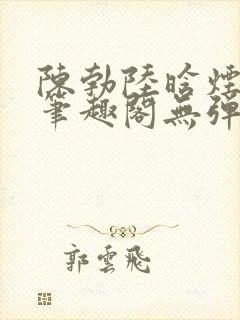 陳勃陸晗煙
筆趣閣無彈
郭雲飛